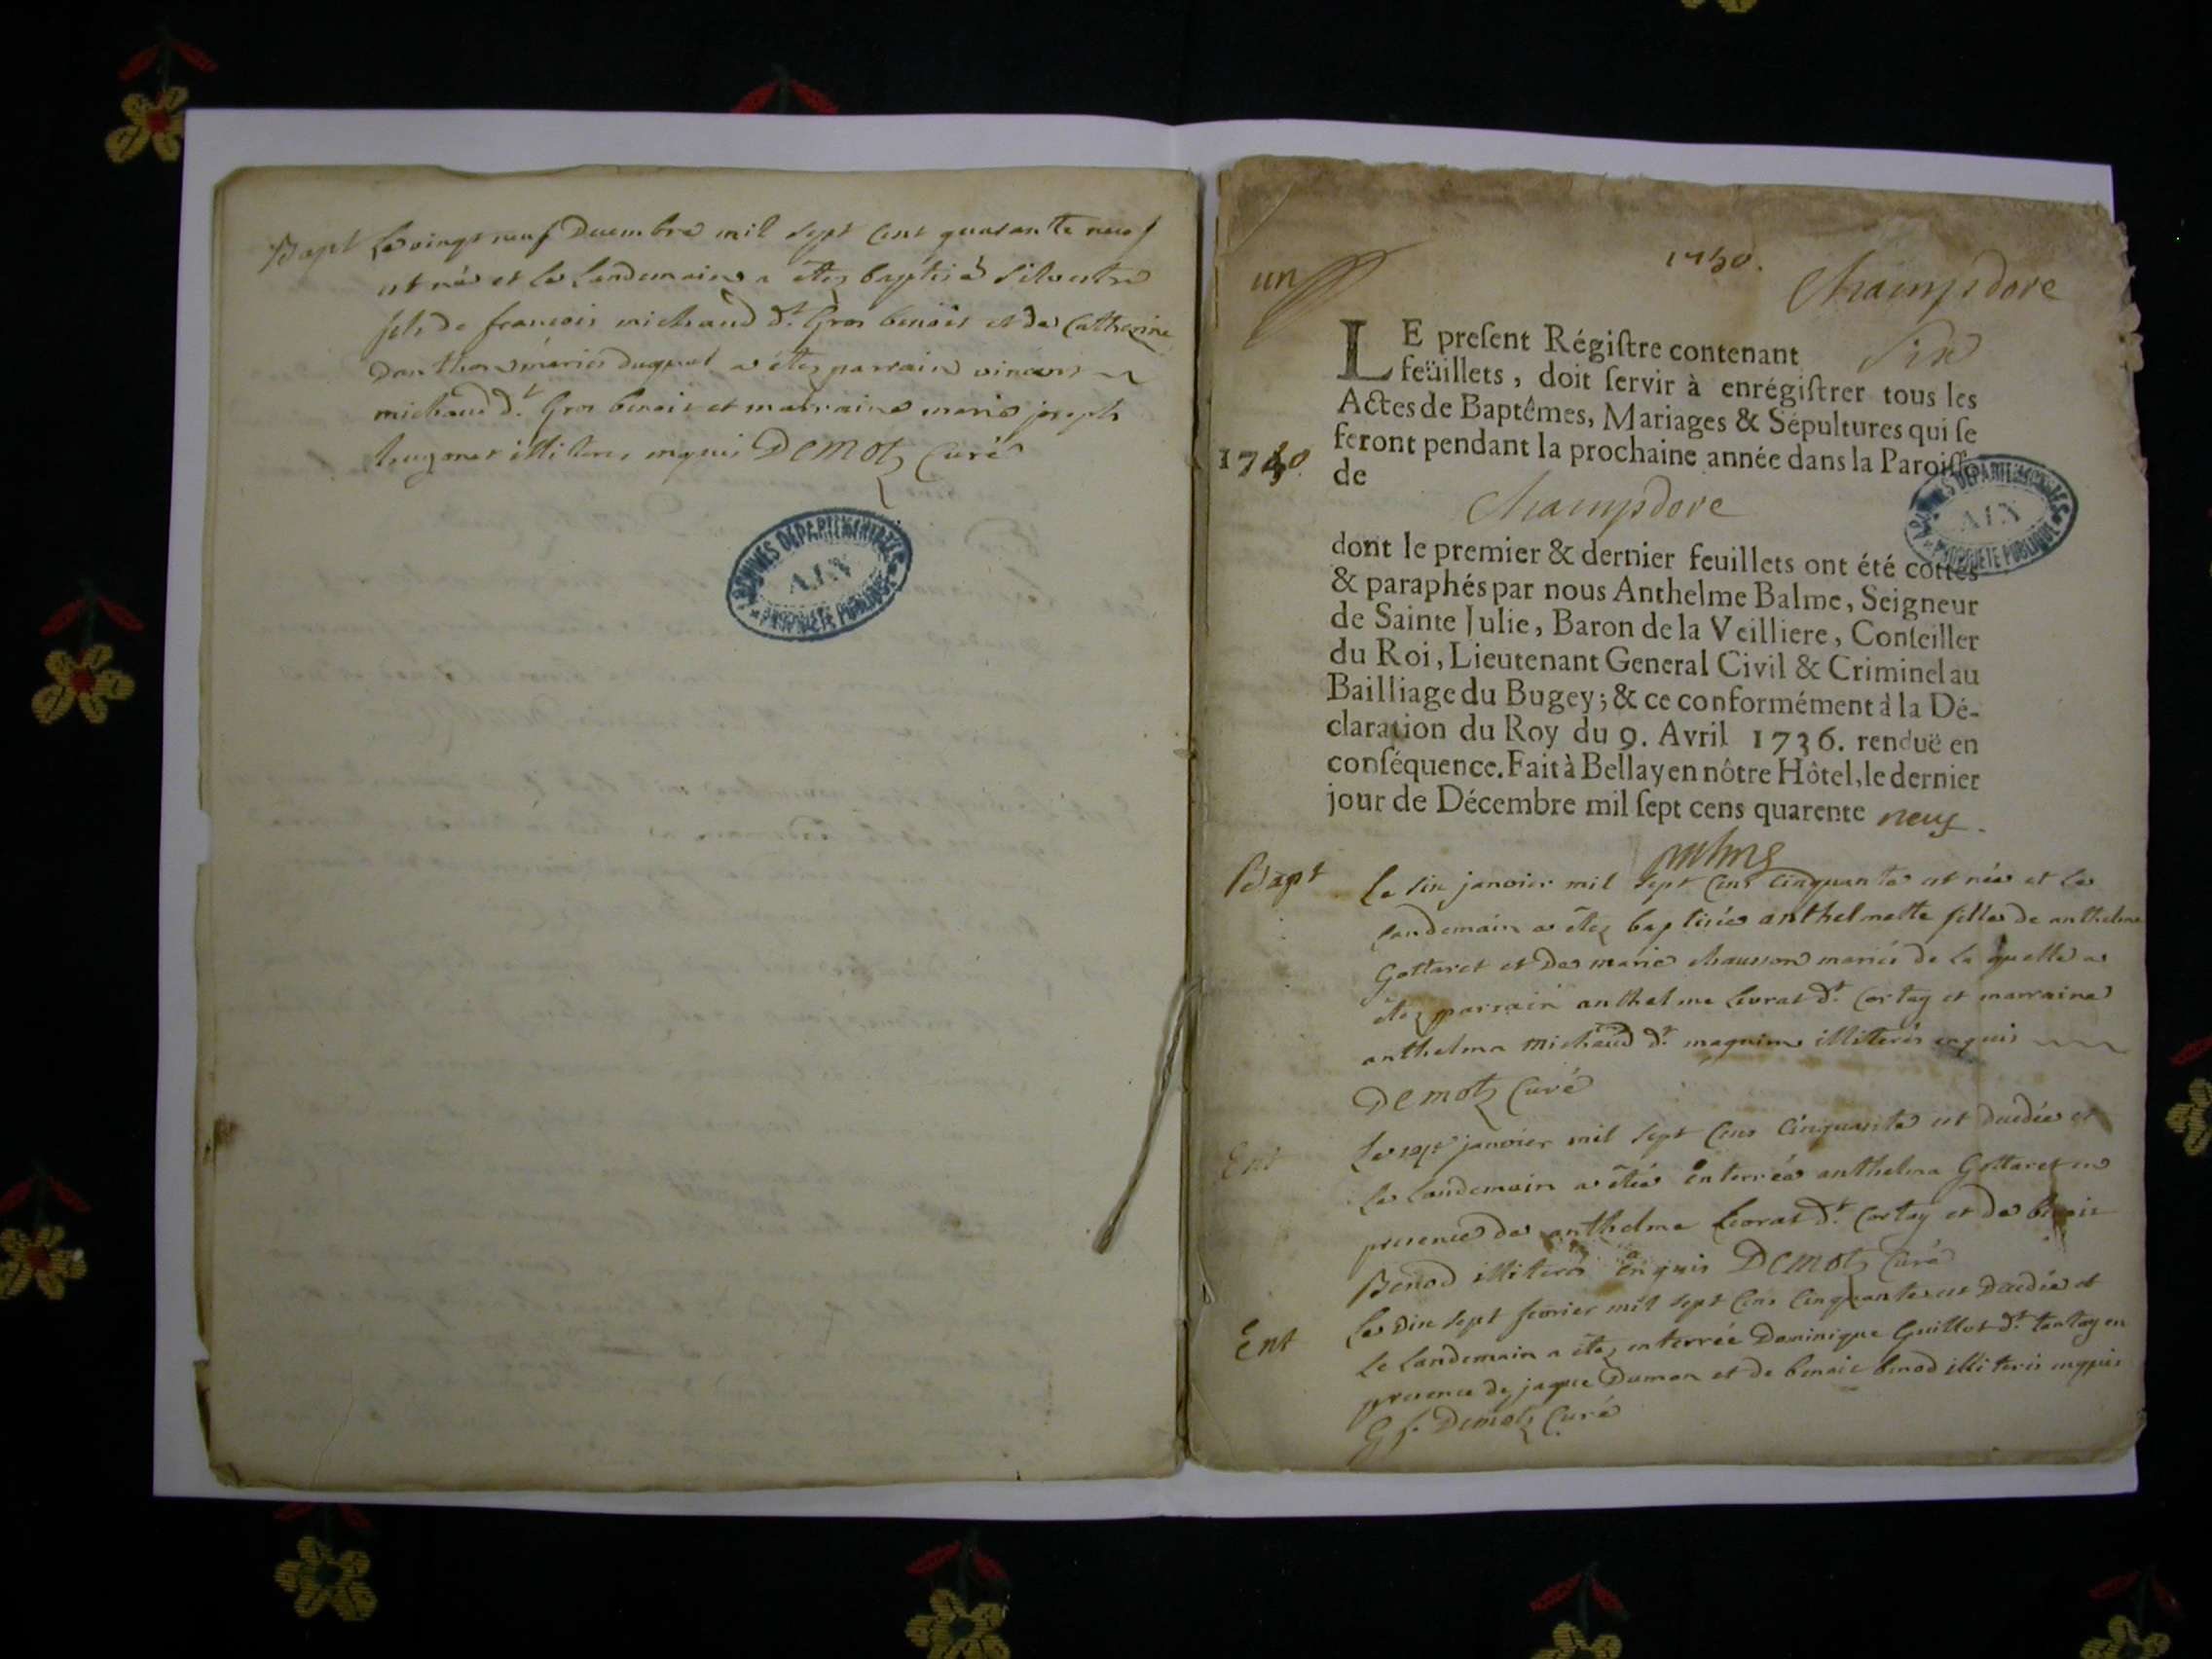 Bapt Le vingt neuf Decembre mil sept cent quarante neuf
est né et le Landemain a étez baptisé Silvestre
fils de francois michaud dt. Gros benoit et de Catherine
mariés duquel a étez parrain vincent
michaud dt. Gros benoit et marraine marie joseph
illiteres enquis Demotz Curé
ARCHIVES DEPARTEMENTALES
AIN
PROPRIETE PUBLIQUE
un
1750.
Champdore
LE preſent Régiſtre contenant Six
feüillets, doit ſervir à enrégiſtrer tous les
Actes de Baptêmes, Mariages & Sépultures qui ſe
feront pendant la prochaine année dans la Paroiſſe
1750
de
Champdore
ARCHIVES DEPARTEMENTALES
AIN
PROPRIETE PUBLIQUE
dont le premier & dernier feuillets ont été cottés
& paraphés par nous Anthelme Balme, Seigneur
de Sainte Julie, Baron de la Veilliere, Conſeiller
du Roi, Lieutenant General Civil & Criminel au
Bailliage du Bugey; & ce conformément à la Dé-
claration du Roy du 9. Avril 1736. renduë en
conſéquence. Fait à Bellay en nôtre Hôtel, le dernier
jour de Décembre mil ſept cens quarente neuf.
Bapt Le six janvier mil sept cens cinquante est née et le
Landemain a étez baptisée anthelmette fille de anthelme
Gottaret et de marie chausson mariés de la quelle a
étez parrain anthelme Levrat dt. Cortey et marraine
anthelma michaud dt. illiterés enquis
Demotz Curé
Ent Le sept janvier mil sept cens cinquante est decedée et
le Landemain a étée enterrée anthelma Gottaret en
presence de anthelme Levrat dt. Cortey et de benoit
Benod illiterés enquis Demotz Curé
Ent Le dix sept fevrier mil sept cens cinquante est decedée et
le Landemain a étez enterrée Dominique Guillot dt. en
presence de jaque Dumon et de benoit benod illiterés enquis
Demotz Curé